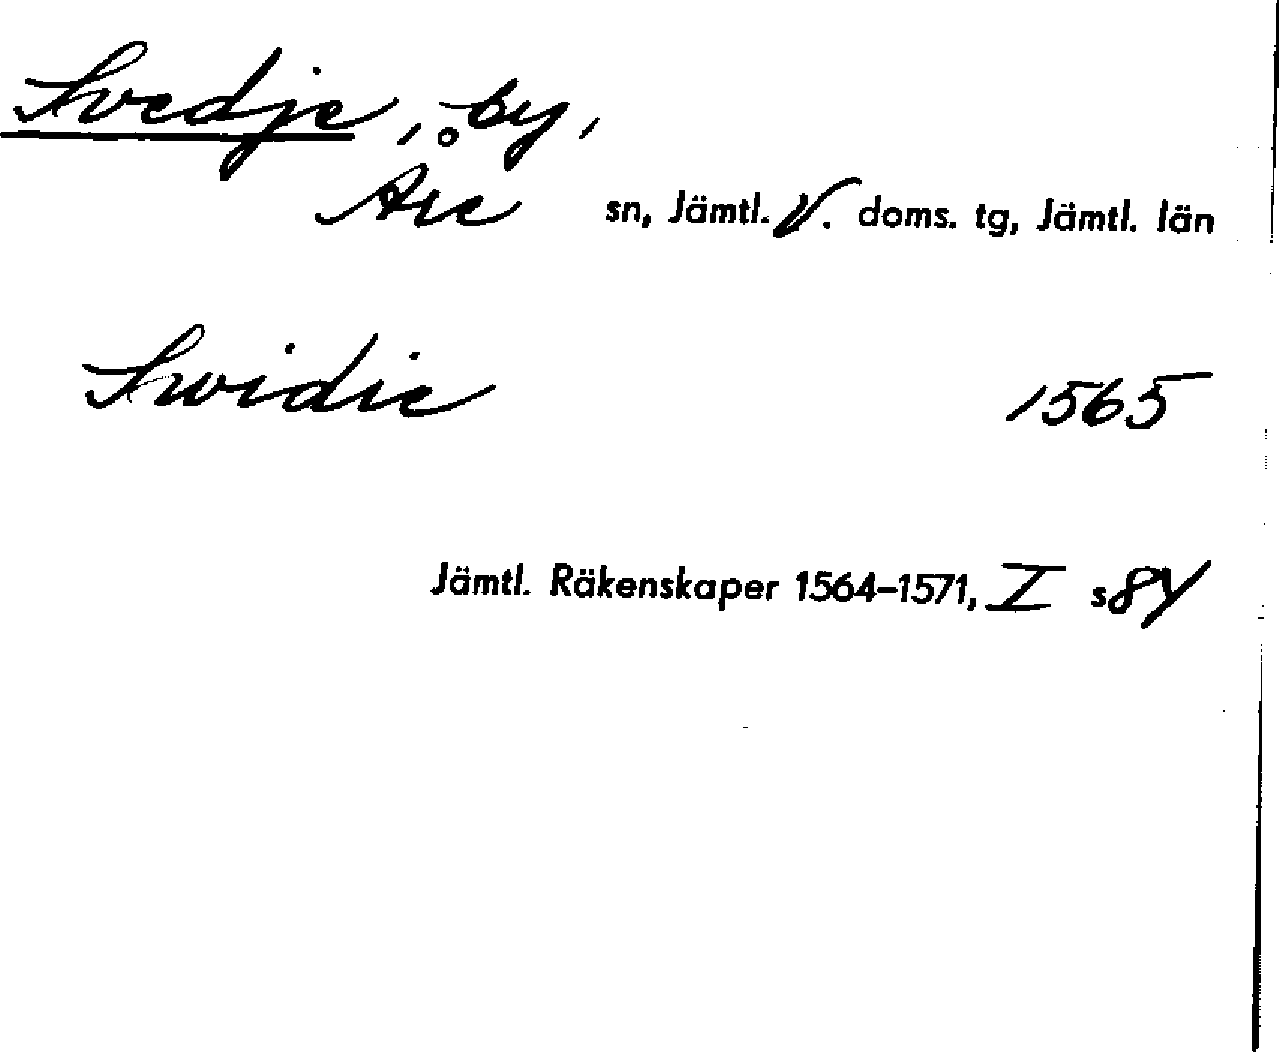 Svedje, by,
Åre sn, Jämtl. V. doms. tg, Jämtl. län
Swidie 1565
Jämtl. Räkenskaper 1564–1571, I s 84